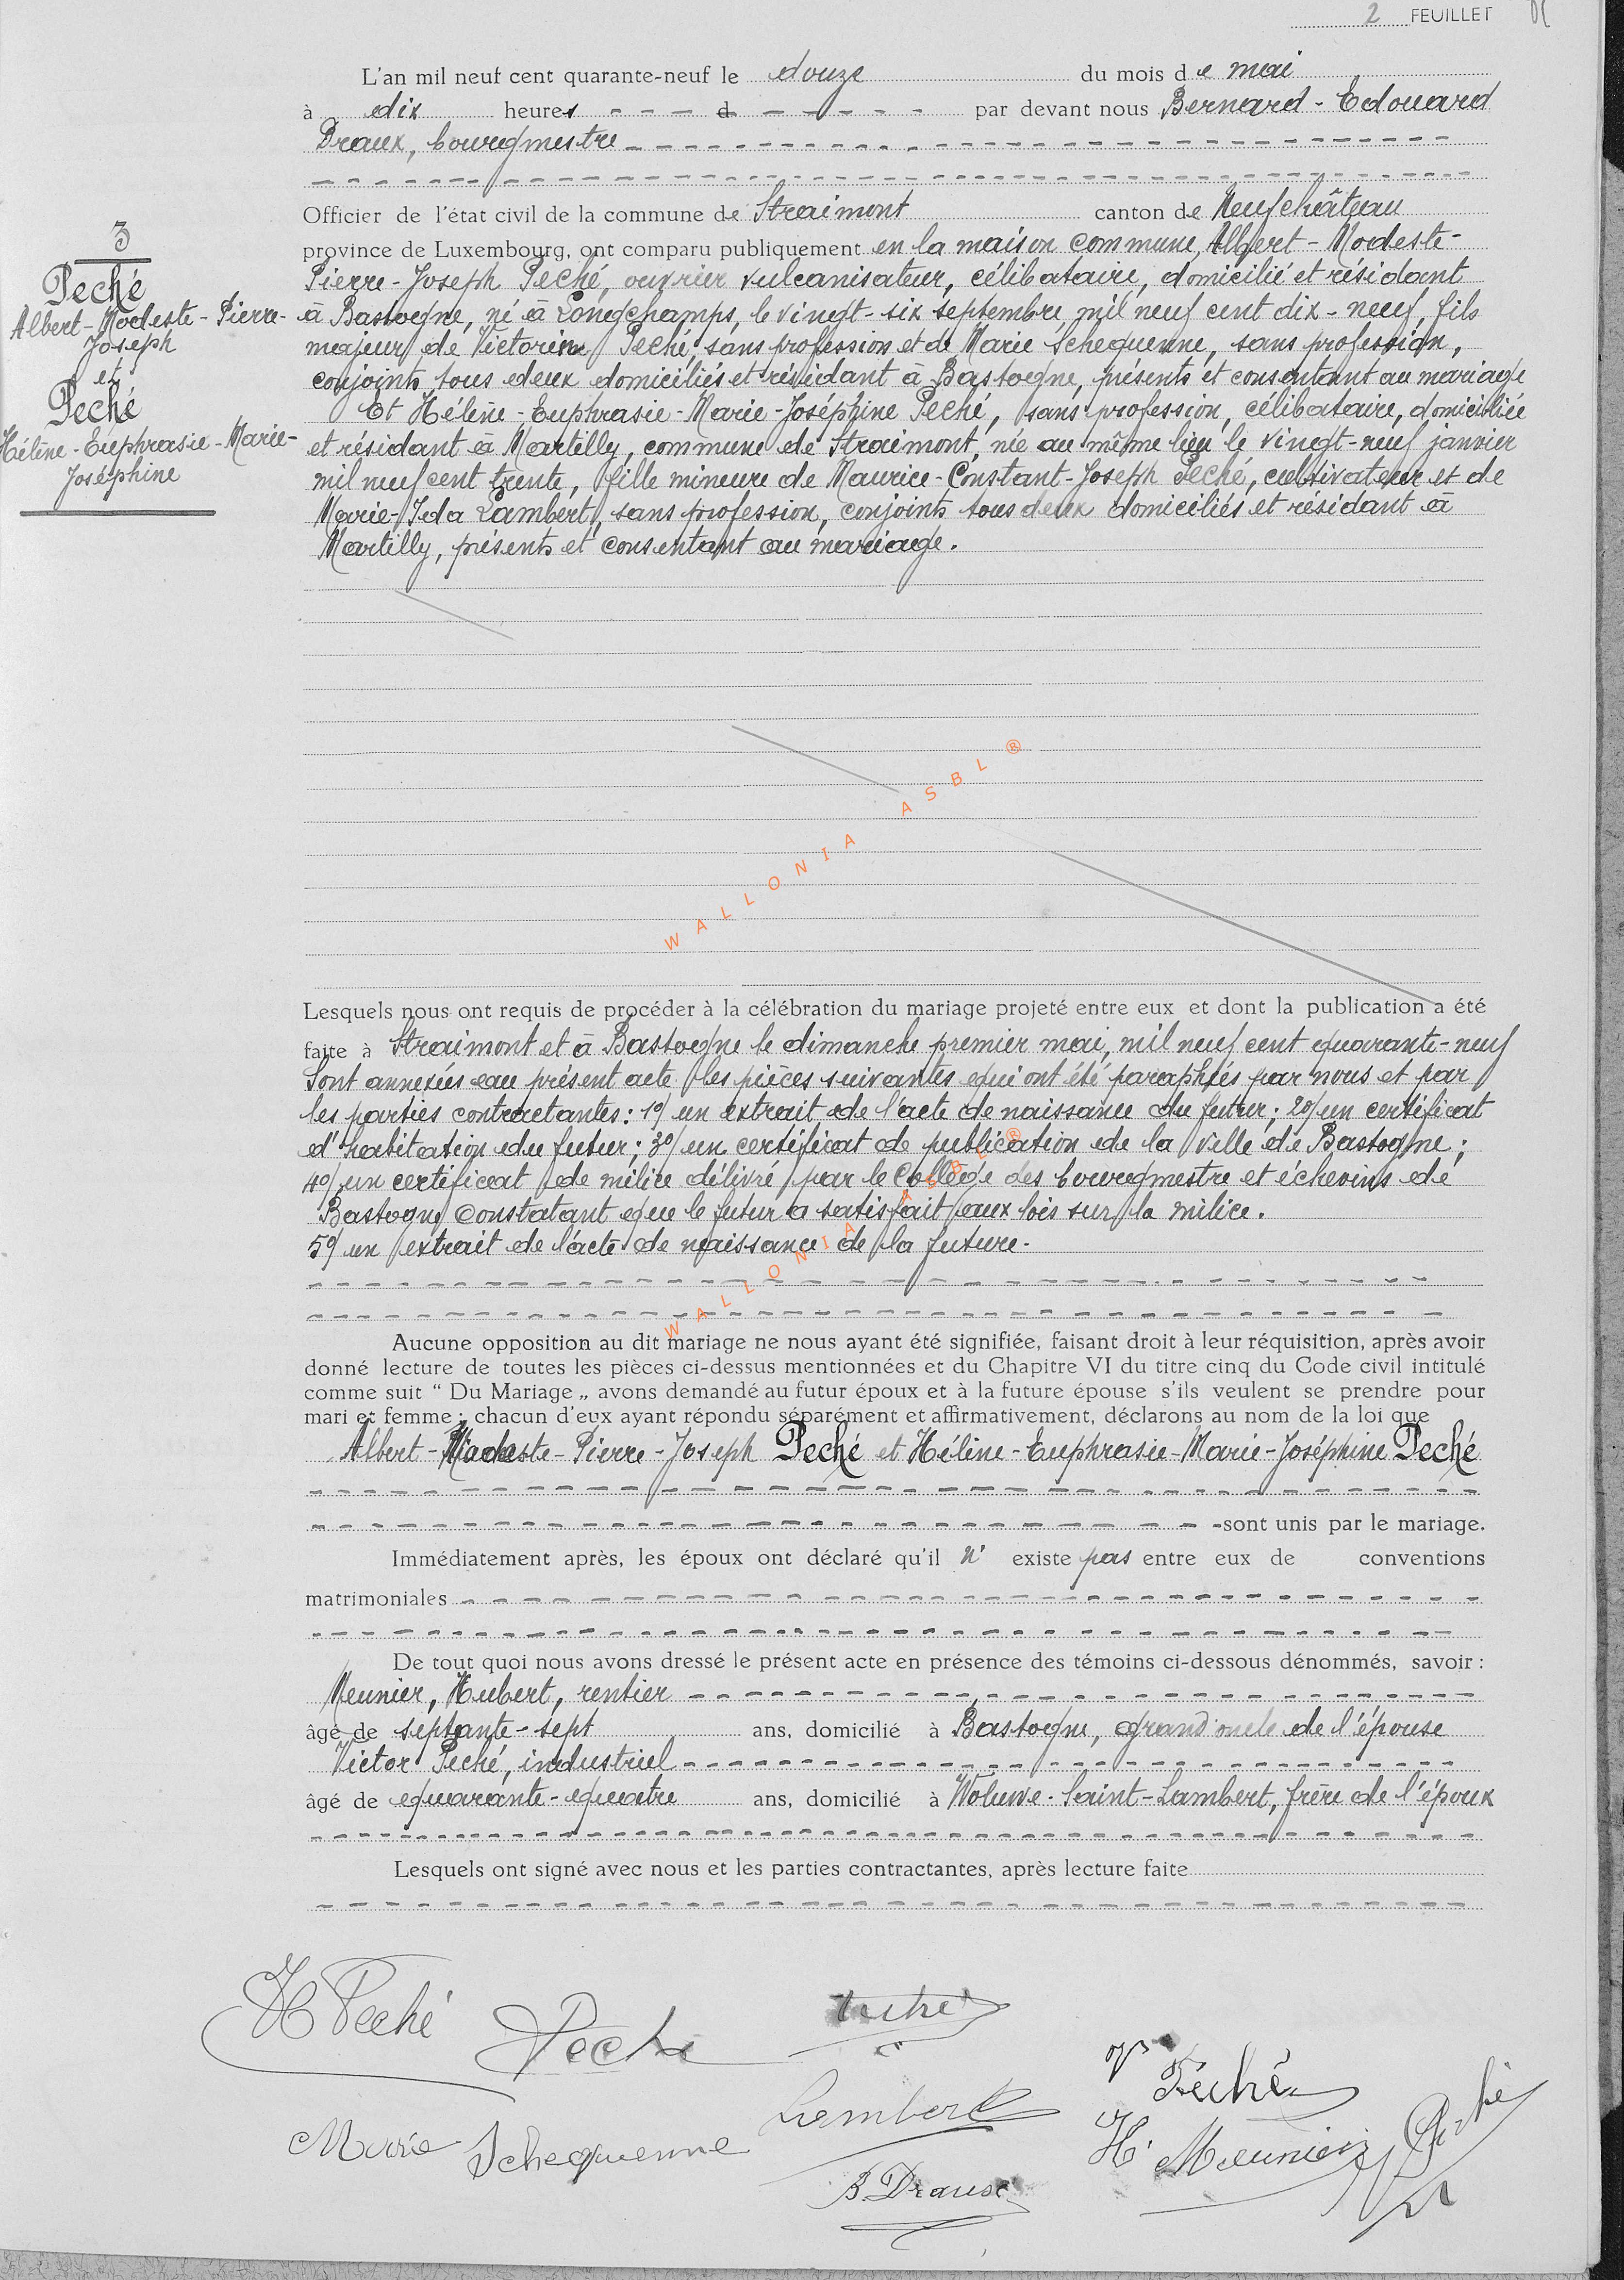 2 FEUILLET
L'an mil neuf cent quarante-neuf le douze du mois de mai
à dix heures d par devant nous Bernard-Edouard
Draux, bourgmestre
Officier de l'état civil de la commune de Straimont canton de Neufchâteau
province de Luxembourg, ont comparu publiquement en la maison commune, Albert-Modeste-
Pierre-Joseph Peché, ouvrier vulcanisateur, célibataire, domicilié et résidant
à Bastogne, né à Longchamps, le vingt-six septembre mil neuf cent dix-neuf, fils
majeur de Victorin Peché, sans profession et de Marie Schequenne, sans profession,
conjoints tous deux domiciliés et résidant à Bastogne, présents et consentant au mariage
Et Hélène-Euphrasie-Marie-Joséphine Peché, sans profession, célibataire, domiciliée
et résidant à Martilly, commune de Straimont, née au même lieu le vingt-neuf janvier
mil neuf cent trente, fille mineure de Maurice-Constant-Joseph Peché, cultivateur et de
Marie-Ida Lambert, sans profession, conjoints tous deux domiciliés et résidant à
Martilly, présents et consentant au mariage.
3
Peché
Albert-Modeste-Pierre-
Joseph
et
Peché
Hélène-Euphrasie-Marie-
Joséphine
WALLONIA ASBL ®
Lesquels nous ont requis de procéder à la célébration du mariage projeté entre eux et dont la publication a été
faite à Straimont et à Bastogne le dimanche premier mai, mil neuf cent quarante-neuf
Sont annexées au présent acte les pièces suivantes qui ont été paraphées par nous et par
les parties contractantes: 1o/ un extrait de l'acte de naissance du futur; 2o/ un certificat
d'habitation du futur; 3o/ un certificat de publication de la ville de Bastogne;
4o/ un certificat de milice délivré par le Collège des bourgmestre et échevins de
Bastogne constatant que le futur a satisfait aux lois sur la milice.
5o/ un extrait de l'acte de naissance de la future.
WALLONIA ASBL ®
Aucune opposition au dit mariage ne nous ayant été signifiée, faisant droit à leur réquisition, après avoir
donné lecture de toutes les pièces ci-dessus mentionnées et du Chapitre VI du titre cinq du Code civil intitulé
comme suit “ Du Mariage „ avons demandé au futur époux et à la future épouse s'ils veulent se prendre pour
mari et femme ; chacun d'eux ayant répondu séparément et affirmativement, déclarons au nom de la loi que
Albert-Modeste-Pierre-Joseph Peché et Hélène-Euphrasie-Marie-Joséphine Peché
sont unis par le mariage.
Immédiatement après, les époux ont déclaré qu'il n' existe pas entre eux de conventions
matrimoniales
De tout quoi nous avons dressé le présent acte en présence des témoins ci-dessous dénommés, savoir :
Meunier, Hubert, rentier
âgé de septante-sept ans, domicilié à Bastogne, grand'oncle de l'épouse
Victor Peché, industriel
âgé de quarante-quatre ans, domicilié à Woluwe-Saint-Lambert, frère de l'époux
Lesquels ont signé avec nous et les parties contractantes, après lecture faite
H Peché
Peche
V Péché
Lambert
Marie Schequenne
H. Meunier
B. Draux